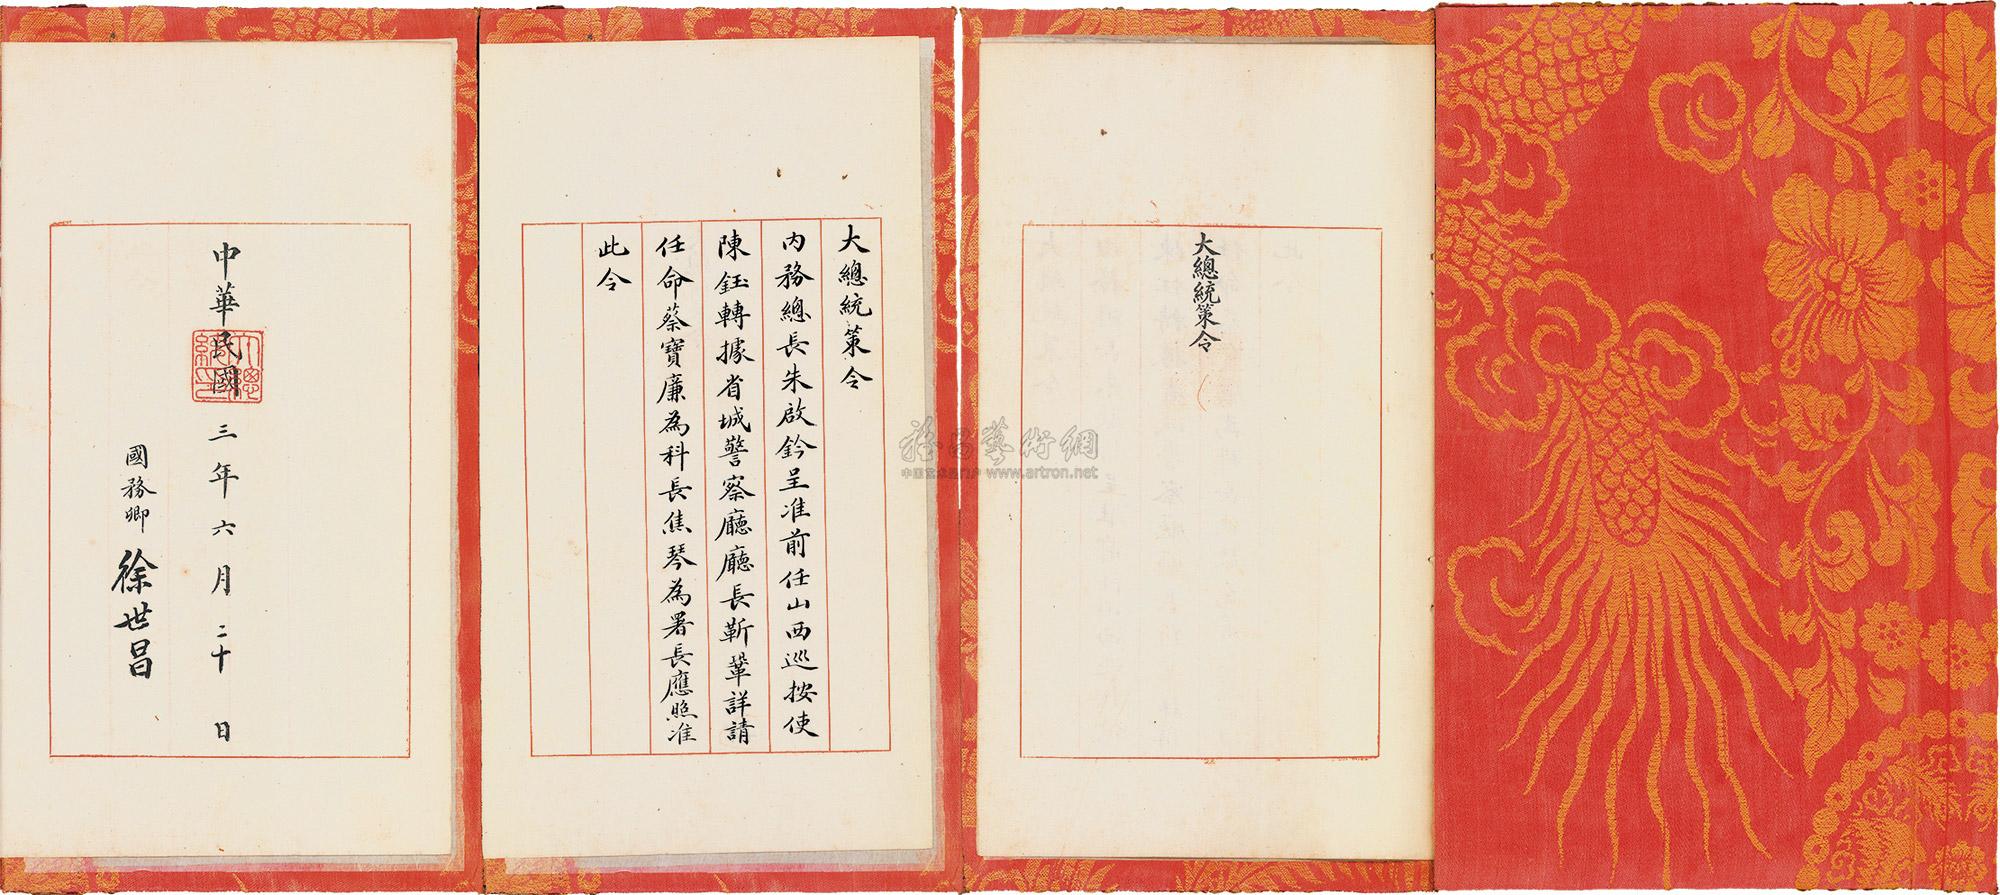 大總統策令
大總統策令
內務總長朱啟鈐呈准前任山西巡按使
陳鈺轉據省城警察廳廳長靳鞏詳請
任命蔡寶廉為科長焦琴為署長應照准
此令
中華民國三年六月二十日
國務卿 徐世昌
中国艺术品门户 www.artron.net